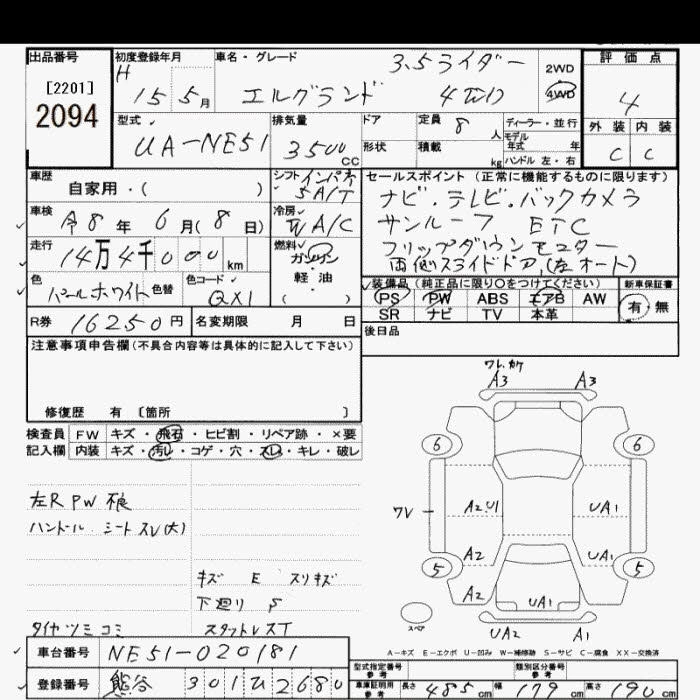 出品番号
[2201]
2094
初度登録年月
H 15 5月
車名・グレード
3.5ライダー
エルグランド 4WD
2WD
4WD
評価点
4
外装 内装
C C
型式
UA-NE51
排気量
3500cc
ドア
形状
定員 8人
積載 kg
ディーラー・並行
モデル年式 年
ハンドル 左・右
車歴
自家用・( )
シフト インパネ
5A/T
セールスポイント (正常に機能するものに限ります)
ナビ・テレビ・バックカメラ
サンルーフ ETC
フリップダウンモニター
両側スライドドア(左オート)
車検
令8年 6月(8日)
冷房
WA/C
走行
14万4千000km
燃料
ガソリン
軽・油
色
パールホワイト 色替
色コード
QX1
装備品 (純正品に限り○をつけてください)
PS PW ABS エアB AW
SR ナビ TV 本革
新車保証書
有 無
R券 16250円
名変期限 月 日
後日品
注意事項申告欄(不具合内容等は具体的に記入して下さい)
修復歴 有 〔箇所 〕
検査員記入欄
FW キズ・飛石・ヒビ割・リペア跡・×要
内装 キズ・汚れ・コゲ・穴・スレ・キレ・破レ
左R PW 不良
ハンドル・シートスレ(大)
キズ E スリキズ
下廻り S
タイヤツミコミ
スタットレスT
ワレ、カケ
A3 A3
6 6
ワレ
A2 U1 UA1
A2 UA1
5 5
A2 UA1
UA2 A1
スペア
A-キズ E-エクボ U-凹み W-補修跡 S-サビ C-腐食 XX-交換済
車台番号 NE51-020181
登録番号 熊谷 301ひ2680
型式指定番号 参考
類別区分番号 参考
車庫証明用 参考
長さ 485cm 幅 179cm 高さ 190cm